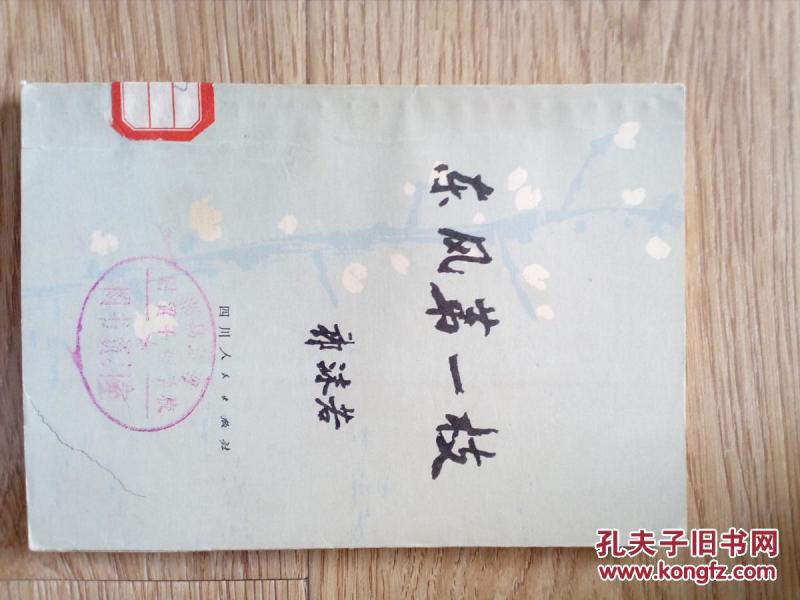 东风第一枝
郭沫若
四川人民出版社
图书资料室
孔夫子旧书网
www.kongfz.com